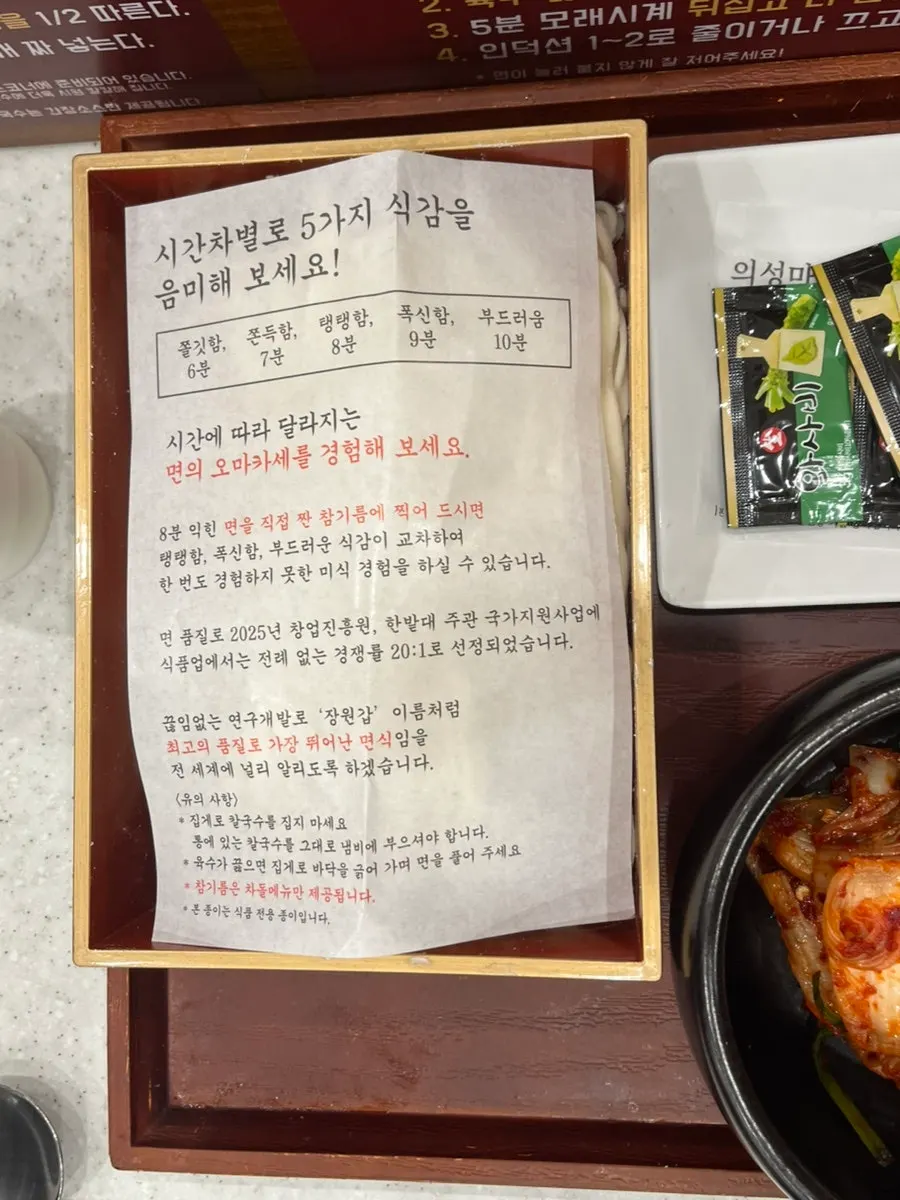 1/2 따른다.
짜 넣는다.
준비되어 있습니다.
3. 5분 모래시계 뒤집고
4. 인덕션 1~2로 줄이거나 끄고
* 면이 눌러 붙지 않게 잘 저어주세요!
시간차별로 5가지 식감을
음미해 보세요!
쫄깃함, 쫀득함, 탱탱함, 폭신함, 부드러움
6분 7분 8분 9분 10분
시간에 따라 달라지는
면의 오마카세를 경험해 보세요.
8분 익힌 면을 직접 짠 참기름에 찍어 드시면
탱탱함, 폭신함, 부드러운 식감이 교차하여
한 번도 경험하지 못한 미식 경험을 하실 수 있습니다.
면 품질로 2025년 창업진흥원, 한밭대 주관 국가지원사업에
식품업에서는 전례 없는 경쟁률 20:1로 선정되었습니다.
끊임없는 연구개발로 '장원갑' 이름처럼
최고의 품질로 가장 뛰어난 면식임을
전 세계에 널리 알리도록 하겠습니다.
〈유의 사항〉
* 집게로 칼국수를 집지 마세요
통에 있는 칼국수를 그대로 냄비에 부으셔야 합니다.
* 육수가 끓으면 집게로 바닥을 긁어 가며 면을 풀어 주세요
* 참기름은 차돌메뉴만 제공됩니다.
* 본 종이는 식품 전용 종이입니다.
의성마
와사비